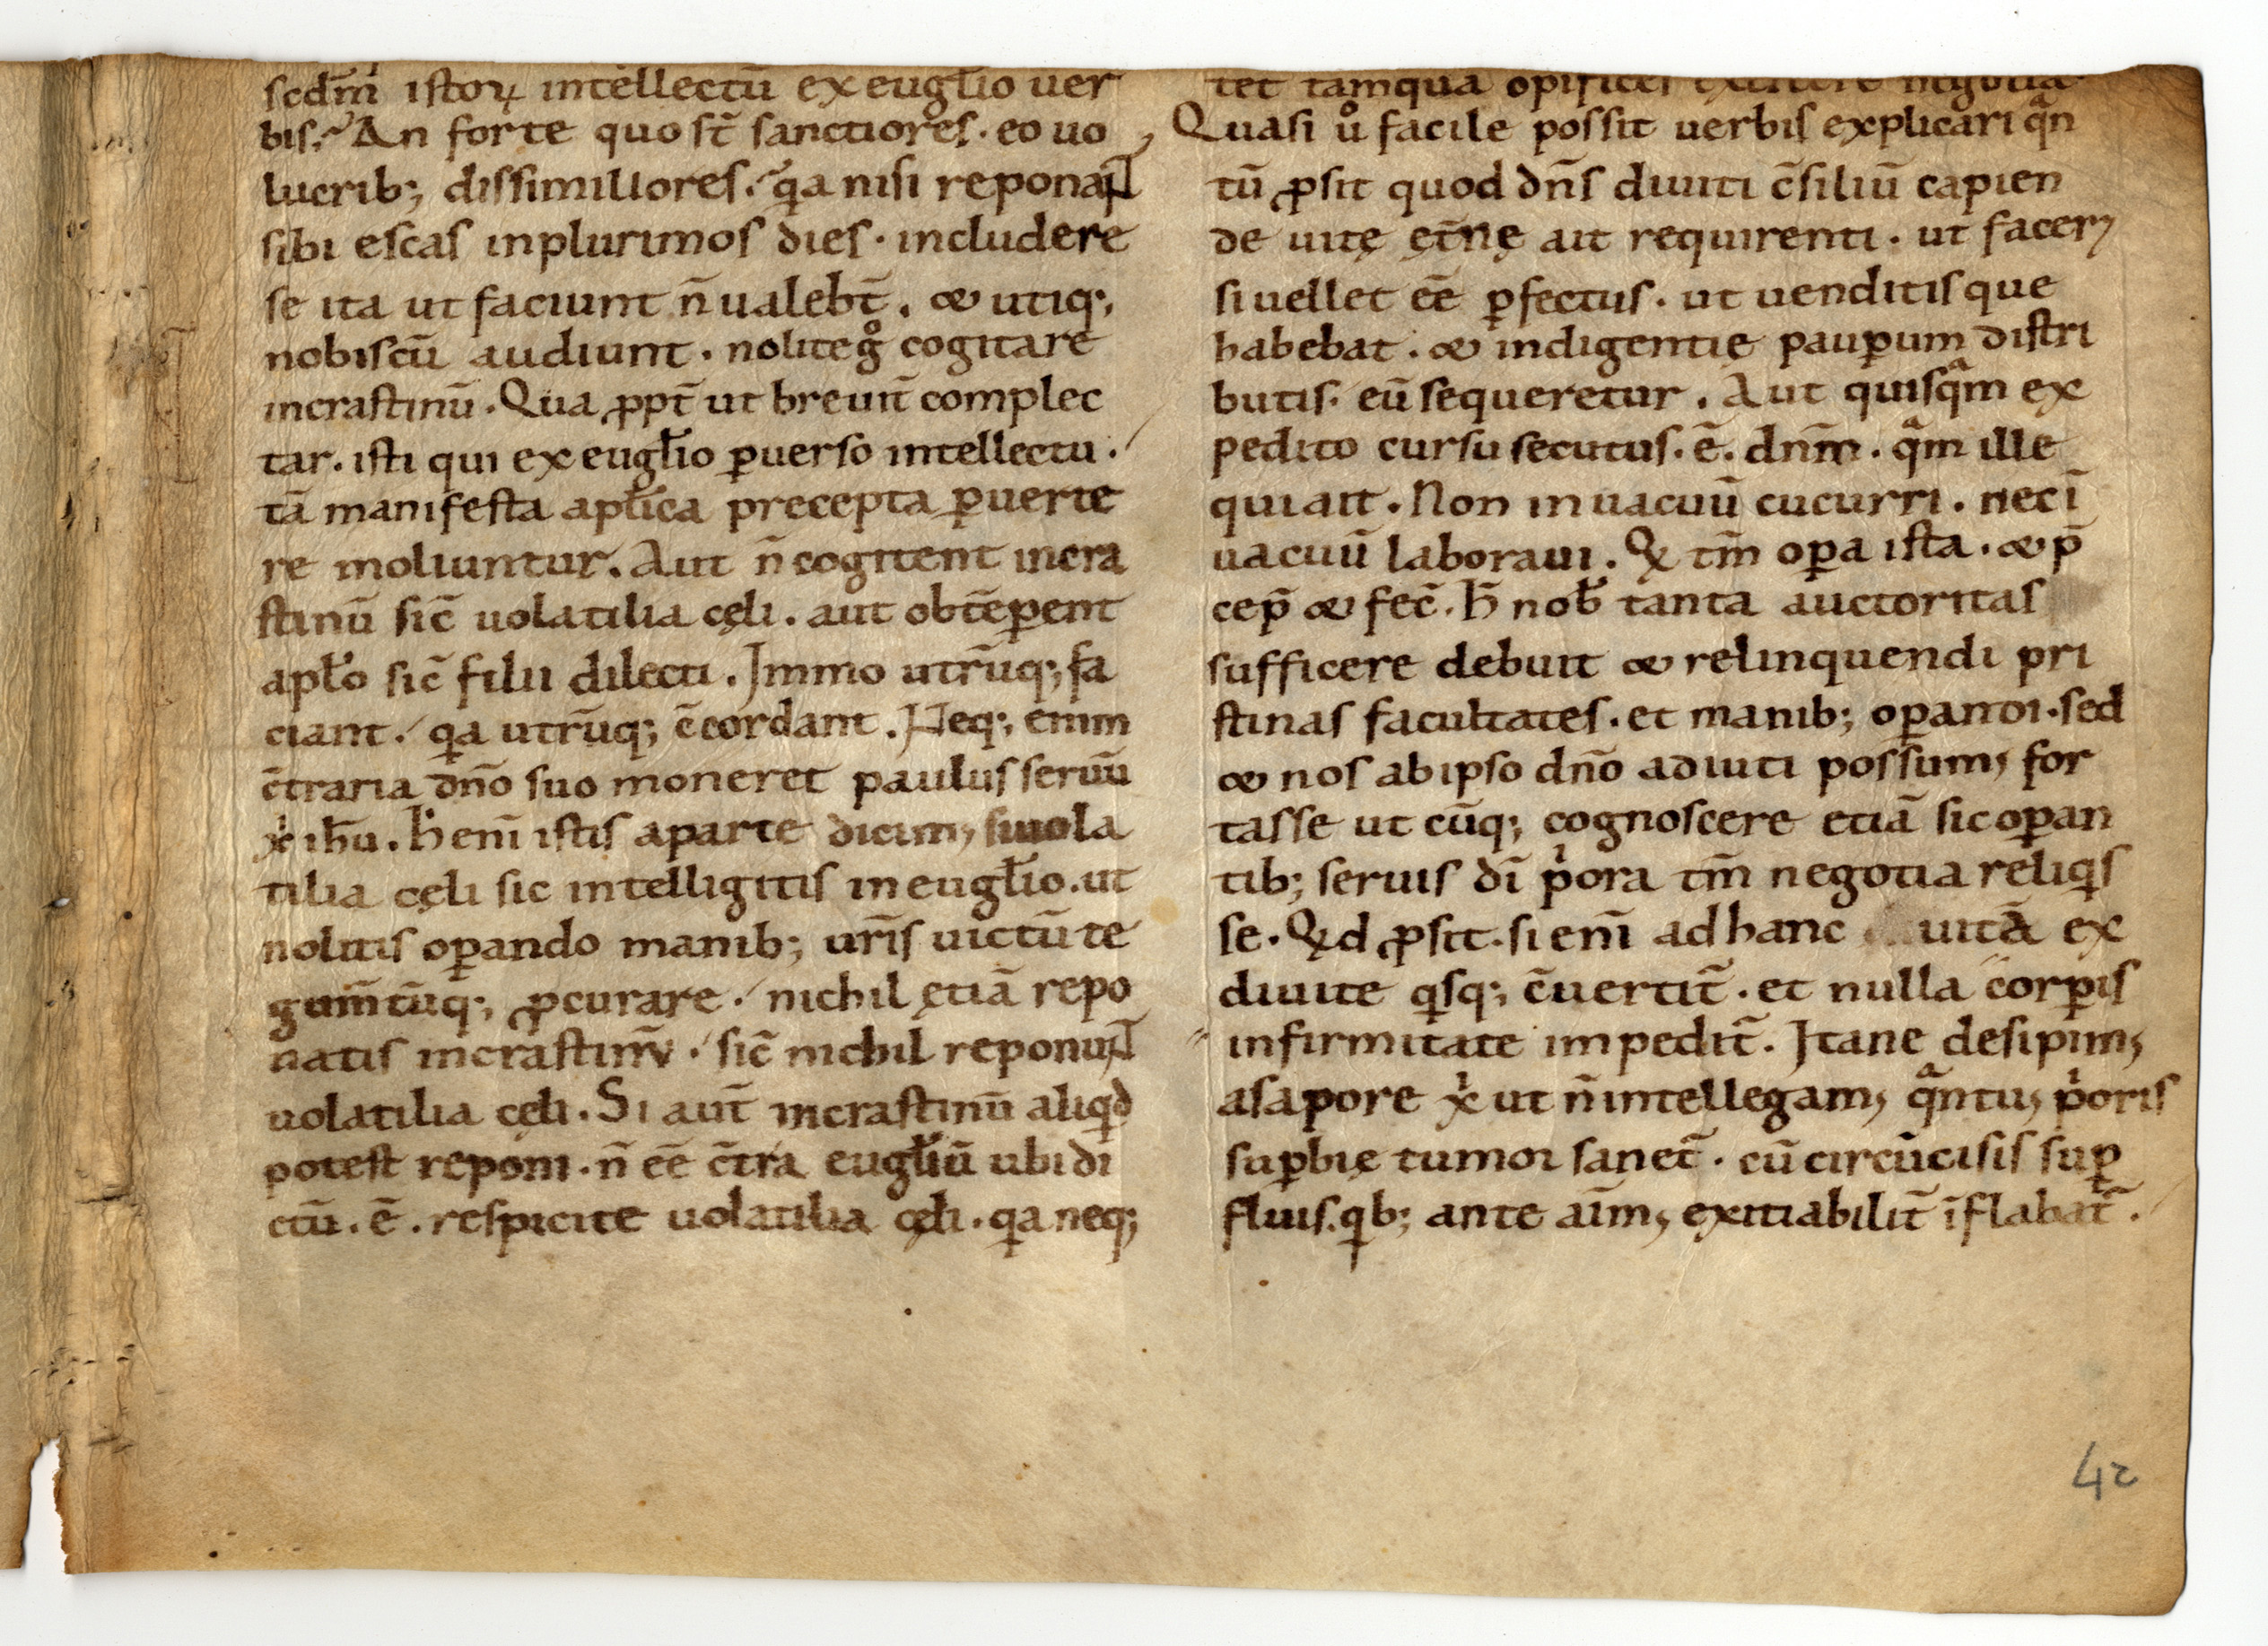 scdm̄ istoꝝ intellectū ex eugl̄io uer
bis. An forte quo st̄ sanctiores. eo uo
lucrib; dissimiliores. qa nisi reponant
sibi escas inplurimos dies. includere
se ita ut faciunt n̄ ualebt̄. & utiq;
nobiscū audiunt. nolite gͦ cogitare
incrastinū. Qua ꝓpt̄ ut breuit̄ complec
tar. isti qui ex eugl̄io ꝑuerso intellectu.
tā manifesta apl̄ica precepta ꝑuerte
re moliuntur. Aut n̄ cogitent incra
stinū sic̄ uolatilia cęli. aut obtēꝑent
apl̄o sic̄ filii dilecti. Immo utrūq; fa
ciant. qa utrūq; c̄cordant. Neq; enim
c̄traria dn̄o suo moneret paulus seruū
xp̄i ih̄u. h̄ enī istis aparte dicim; si uola
tilia cęli sic intelligitis in eugl̄io. ut
nolitis oꝑando manib; ur̄is uictū te
gum̄tūq; ꝓcurare. nichil ętiā repo
natis incrastinū. sic̄ nichil reponunt
uolatilia cęli. Si aut̄ incrastinū aliqd
potest reponi. n̄ eē c̄tra eugl̄iū ubi di
ctū. ē. respicite uolatilia cęli. qa neq;
tet tamqua opifices exercere negotia.
Quasi uͦ facile possit uerbis explicari qᵃn
tū ꝓsit quod dn̄s diuiti c̄siliū capien
de uitę ęt̄nę ait requirenti. ut faceret
si uellet eē ꝑfectus. ut uenditis que
habebat. & indigentię pauꝑum distri
butis. eū sequeretur. Aut quisqᵃm ex
pedito cursu secutus. ē. dn̄m. qᵃm ille
qui ait. Non in uacuū cucurri. nec ī
uacuū laboraui. Q tm̄ oꝑa ista. & p̄
cep̄ & fec̄. h̄ nob̄ tanta auctoritas
sufficere debuit & relinquendi pri
stinas facultates. et manib; oꝑandi. sed
& nos ab ipso dn̄o adiuti possum; for
tasse ut cūq; cognoscere etiā sic oꝑan
tib; seruis dī pⁱora tm̄ negotia reliqis
se. Qd ꝓsit. si enī ad hanc uitā ex
diuite qisq; c̄uertit̄. et nulla corꝑis
infirmitate impedit̄. Itane desipim;
asapore xp̄i ut n̄ intellegam; qᵃntu; pⁱoris
suꝑbię tumor sanet̄. cū circūcisis suꝑ
fluis. qb; ante aīm; exitiabilit̄ īflabat̄.
42